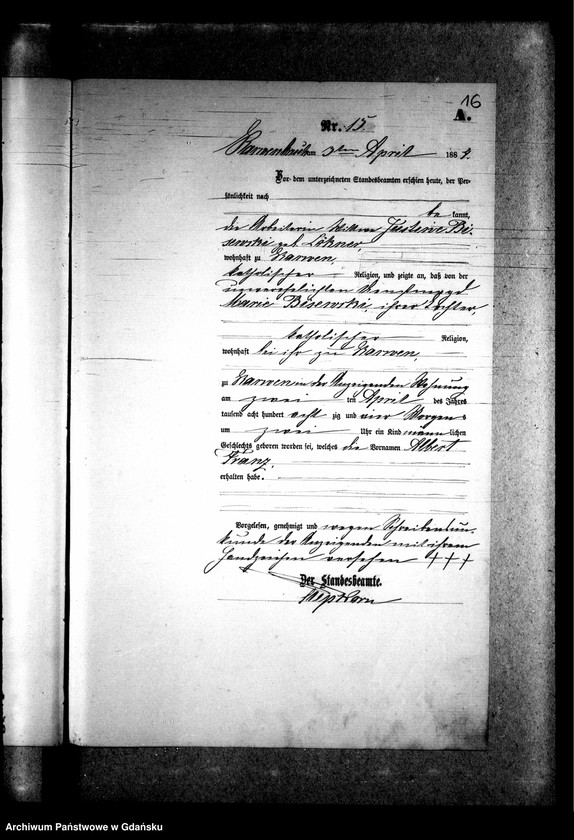 16
A.
Nr. 15.
Karwenbruch am 3ten April 1884.
Vor dem unterzeichneten Standesbeamten erschien heute, der Per-
sönlichkeit nach
be kannt,
die Arbeiterin Wittwe Justine Bi-
sewski geb. Lökner,
wohnhaft zu Karwen,
katholischer Religion, und zeigte an, daß von der
unverehelichten Dienstmagd
Marie Bisewski, ihrer Tochter
katholischer Religion,
wohnhaft bei ihr zu Karwen,
zu Karwen in der Anzeigenden Wohnung
am zwei ten April des Jahres
tausend acht hundert acht zig und vier Morgens
um zwei Uhr ein Kind männ lichen
Geschlechts geboren worden sei, welches die Vornamen Albert
Franz,
erhalten habe.
Vorgelesen, genehmigt und wegen Schreibensun-
kunde der Anzeigenden mit ihrem
Handzeichen versehen +++
Der Standesbeamte.
Archiwum Państwowe w Gdańsku